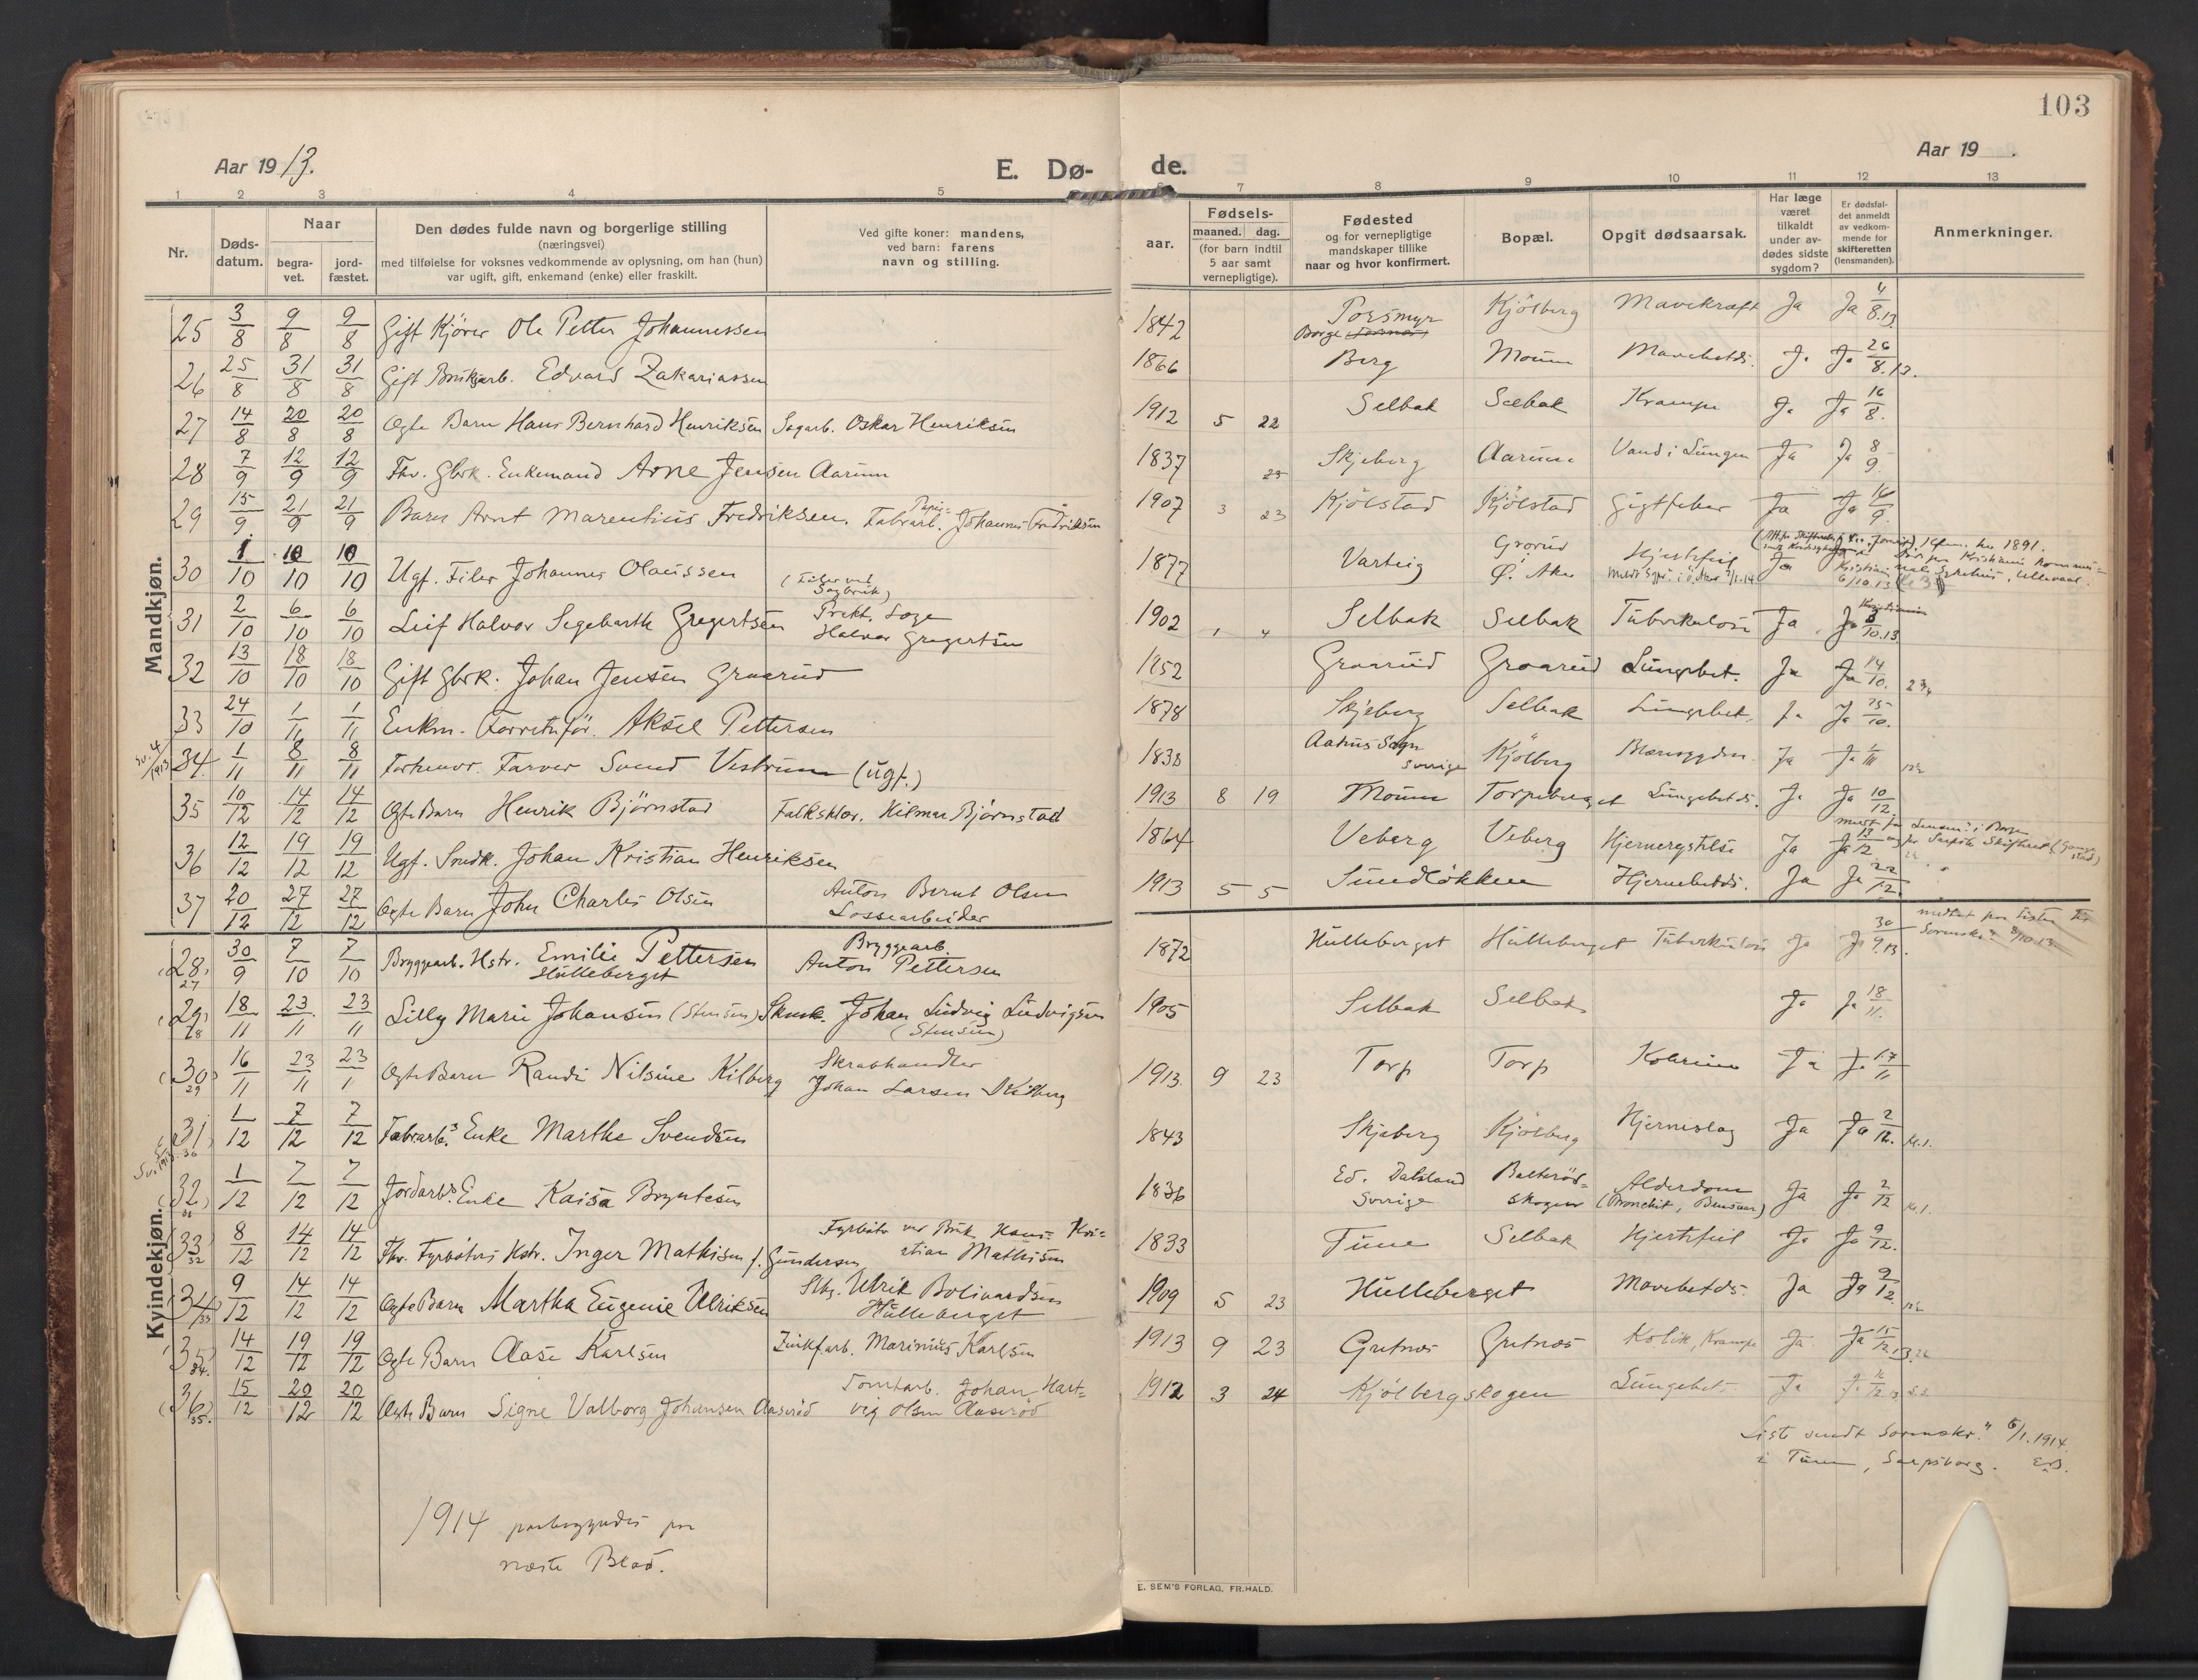 103
Aar 1913.
E. Dø-
de.
Aar 19 .
1 2 3 4 5 6 7 8 9 10 11 12 13
Nr.
Døds-
datum.
Naar
begra-
vet.
jord-
fæstet.
Den dødes fulde navn og borgerlige stilling
(næringsvei)
med tilføielse for voksnes vedkommende av oplysning, om han (hun)
var ugift, gift, enkemand (enke) eller fraskilt.
Ved gifte koner: mandens,
ved barn: farens
navn og stilling.
aar.
Fødsels-
maaned. dag.
(for barn indtil
5 aar samt
vernepligtige).
Fødested
og for vernepligtige
mandskaper tillike
naar og hvor konfirmert.
Bopæl.
Opgit dødsaarsak.
Har læge
været
tilkaldt
under av-
dødes sidste
sygdom?
Er dødsfal-
det anmeldt
av vedkom-
mende for
skifteretten
(lensmanden).
Anmerkninger.
Mandkjøn.
25 3/8 9/8 9/8 Gift Kjører Ole Petter Johannessen 1842 Torsmyr Borge Kjölberg Mavekræft Ja Ja 4/8.13.
26 25/8 31/8 31/8 Gift Brukarb. Edvard Zakariassen 1866 Berg Moum Mavebetds. Ja Ja 26/8.13.
27 14/8 20/8 20/8 Ægte Barn Hans Bernhard Henriksen Sagarb. Oskar Henriksen 1912 5 22 Selbak Selbak Krampe Ja Ja 16/8.
28 7/9 12/9 12/9 Fhv. Gbrk. Enkemand Arne Jensen Aarum 1837 Skjeberg Aarum Vand i Lungen Ja Ja 8/9.
29 15/9. 21/9 21/9 Barn Arnt Marentius Fredriksen. Fabrarb. Johannes Fredriksen 1907 3 23 Kjölstad Kjölstad Gigtfeber Ja Ja 16/9.
30 1/10 10/10 10/10 Ugf. Filer Johannes Olaussen (Filer ved Sagbruk) 1877 Varteig Grorud Ø. Aker Hjertefeil Ja
31 2/10 6/10 6/10 Leif Halvor Segebarth Gregertsen Prakt. Læge Halvor Gregertsen 1902 1 4 Selbak Selbak Tuberkulose Ja Ja 3/10.13
32 13/10 18/10 18/10 Gift Gbrk. Johan Jensen Graarud 1852 Graarud Graarud Lungebet. Ja Ja 14/10.
33 24/10 1/11 1/11 Enkm. Forretnför. Aksel Pettersen 1878 Skjeberg Selbak Lungebet. Ja Ja 25/10.
Sv. 4/1913
34. 1/11 8/11 8/11 Forhenv. Farver Svend Vestrum (ugf.) 1838 Sogn Sverige Kjölberg Ja Ja
35 10/12 14/12 14/12 Ægte Barn Henrik Björnstad Hilmar Björnstad 1913 8 19 Moum Torpeberget Lungebetds. Ja Ja 10/12.
36 12/12 19/12 19/12 Ugf. Smdk. Johan Kristian Henriksen 1864 Veberg Veberg Hjernerystelse Ja Ja 13/12
37 20/12 27/12 27/12 Ægte Barn John Charles Olsen Anton Bernt Olsen Lossearbeider 1913 5 5 Sundlökken Hjernebetds. Ja Ja 22/12.
Kvindekjøn.
(28) 27 30/9 7/10 7/10 Bryggearb. Hstr. Emilie Pettersen Hulleberget Bryggearb. Anton Pettersen 1872 Hulleberget Hulleberget Tuberkulose Ja Ja 30/9.13.
(29) 28 18/11 23/11 23/11 Lilly Marie Johansen (Stensen) Johan Ludvig Ludvigsen (Stensen) 1905 Selbak Selbak Ja Ja 18/11.
(30) 29 16/11 23/11 23/1 Ægte Barn Randi Nilsine Kilberg Skraphandler Johan Larsen Kilberg 1913 9 23 Torp Torp Kolerine Ja Ja 17/11
(31) 30 1/12 7/12 7/12 Fabrarb.s Enke Marthe Svendsen 1843 Skjeberg Kjölberg Hjerneslag Ja Ja 2/12.
(32) 31 1/12 7/12 7/12 Jordarb.s Enke Kaisa Bryntesen 1836 Ed. Dalsland Sverige Balterödskogen Alderdom Ja Ja 2/12
(33) 32 8/12 14/12 14/12 Fhv. Fyrböters Hstr. Inger Mathisen f. Gundersen Fyrböter ved Bruk Hans Kristian Mathisen 1833 Tune Selbak Hjertefeil Ja Ja 9/12.
(34) 33 9/12 14/12 14/12 Ægte Barn Martha Eugenie Ulriksen Ulrik Bolivardsen Hulleberget 1909 5 23 Hulleberget Mavebetds. Ja Ja 9/12
(35) 34. 14/12 19/12 19/12 Ægte Barn Aase Karlsen Zinkf.arb. Marinius Karlsen 1913 9 23 Gretnes Gretnes Kolik, Krampe Ja Ja 15/12
(36) 35. 15/12 20/12 20/12 Ægte Barn Signe Valborg Johansen Aaseröd Tomtarb. Johan Hartvig Olsen Aaseröd 1912 3 24 Kjölbergskogen Lungebet. Ja Ja
Liste sendt Sorenskr. 6/1.1914
i Tune, Sarpsborg.
1914 paabegyndes paa
næste Blad.
E. SEM'S FORLAG, FR.HALD.